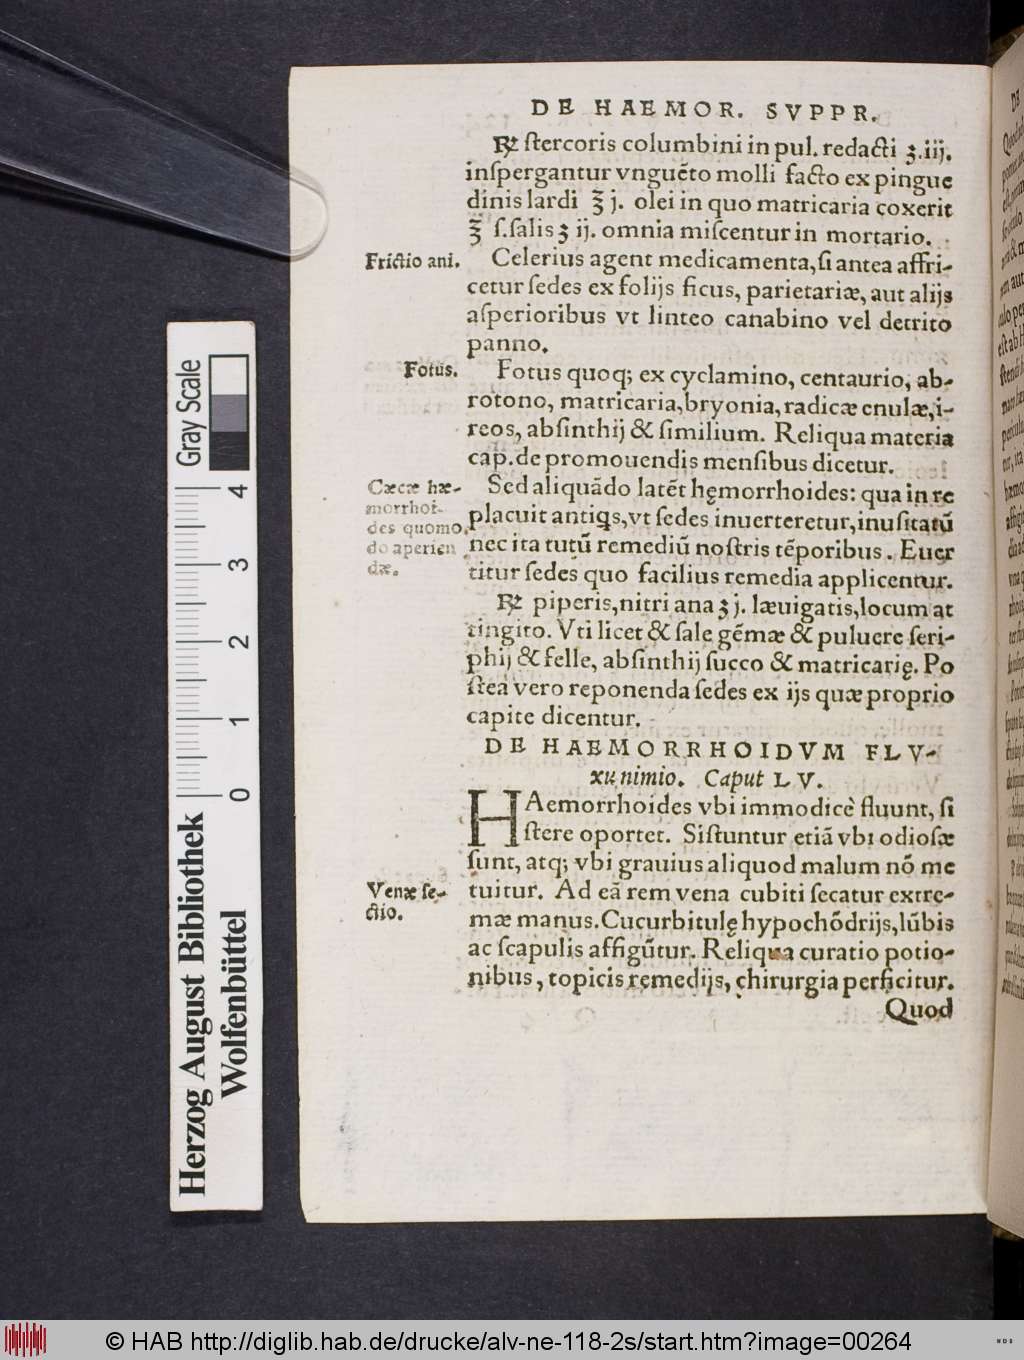 DE HAEMOR. SVPPR.
℞ ſtercoris columbini in pul. redacti ʒ.iij.
inſpergantur vnguẽto molli facto ex pingue
dinis lardi ℥ j. olei in quo matricaria coxerit
℥ ſ. ſalis ʒ ij. omnia miſcentur in mortario.
Frictio ani.
Celerius agent medicamenta, ſi antea affri-
cetur ſedes ex folijs ficus, parietariæ, aut alijs
aſperioribus vt linteo canabino vel detrito
panno.
Fotus.
Fotus quoq; ex cyclamino, centaurio, ab-
rotono, matricaria, bryonia, radicæ enulæ, i-
reos, abſinthij & ſimilium. Reliqua materia
cap. de promouendis menſibus dicetur.
Cæcæ hæ-
morrhoi-
des quomo
do aperien
dæ.
Sed aliquãdo latẽt hęmorrhoides: qua in re
placuit antiqs, vt ſedes inuerteretur, inuſitatũ
nec ita tutũ remediũ noſtris tẽporibus. Euer
titur ſedes quo facilius remedia applicentur.
℞ piperis, nitri ana ʒ j. læuigatis, locum at
tingito. Vti licet & ſale gẽmæ & puluere ſeri-
phij & felle, abſinthij ſucco & matricarię. Po
ſtea vero reponenda ſedes ex ijs quæ proprio
capite dicentur.
DE HAEMORRHOIDVM FLV-
xu nimio. Caput LV.
HAemorrhoides vbi immodicè fluunt, ſi
ſtere oportet. Siſtuntur etiã vbi odioſæ
ſunt, atq; vbi grauius aliquod malum nõ me
Venæ ſe-
ctio.
tuitur. Ad eã rem vena cubiti ſecatur extre-
mæ manus. Cucurbitulę hypochõdrijs, lũbis
ac ſcapulis affigũtur. Reliqua curatio potio-
nibus, topicis remedijs, chirurgia perficitur.
Quod
Gray Scale
0 1 2 3 4
Herzog August Bibliothek
Wolfenbüttel
© HAB http://diglib.hab.de/drucke/alv-ne-118-2s/start.htm?image=00264